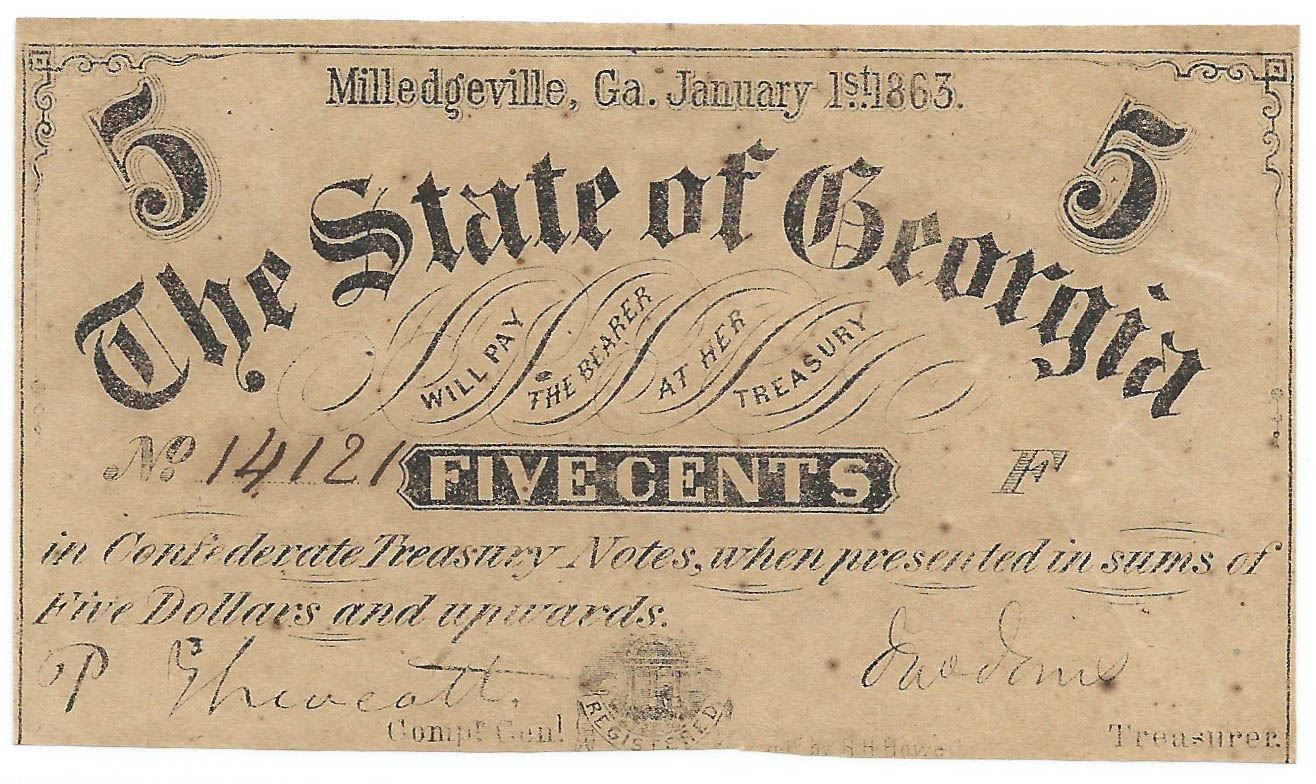 Milledgeville, Ga. January 1st 1863.
5 5
The State of Georgia
WILL PAY
THE BEARER
AT HER
TREASURY
No 14121 FIVE CENTS F
in Confederate Treasury Notes, when presented in sums of
Five Dollars and upwards.
Compt Genl Treasurer.
REGISTERED
by R H Howell